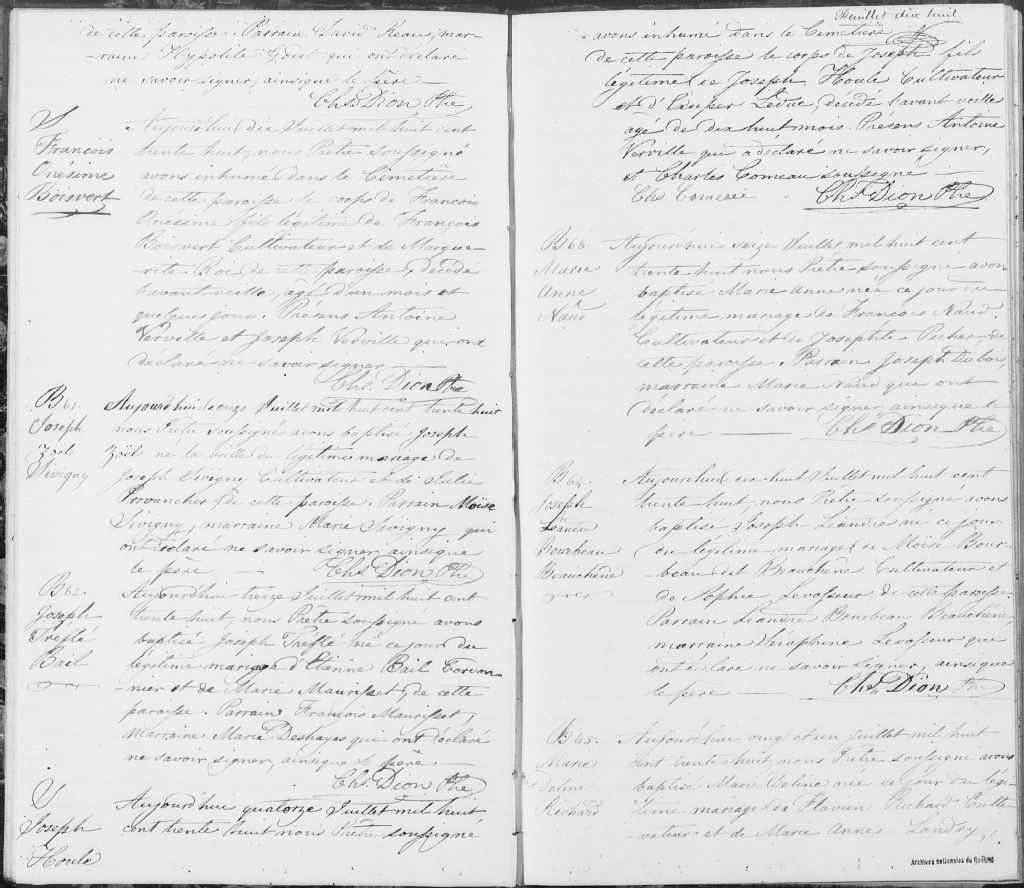 de cette paroisse. Parrain David Reau, mar-
raine Hypolite Godet qui ont déclaré
ne savoir signer, ainsique le père —
Chs. Dion Ptre
S
François
Onésime
Boisvert
Aujourd'hui dix Juillet mil huit cent
trente huit, nous Prêtre soussigné
avons inhumé dans le Cimetière
de cette paroisse le corps de François
Onésime fils légitime de François
Boisvert Cultivateur et de Margue-
rite Roi de cette paroisse, décédé
l'avant veille, agé d'un mois et
quelques jours. Présens Antoine
Verville et Joseph Verville qui ont
déclaré ne savoir signer —
Chs. Dion Ptre
B 61.
Joseph
Zoël
Sivigny
Aujourd'hui onze Juillet mil huit cent trente huit
nous Prêtre soussigné avons baptisé Joseph
Zoël né la veille du légitime mariage de
Joseph Sivigny Cultivateur et de Julie
Provancher de cette paroisse. Parrain Moïse
Sivigny, marraine Marie Sivigny qui
ont déclaré ne savoir signer ainsique
le père — Chs. Dion Ptre
B 62.
Joseph
Trefflé
Bail
Aujourd'hui treize Juillet mil huit cent
trente huit, nous Prêtre soussigné avons
baptisé Joseph Trefflé né ce jour du
légitime mariage d'Etienne Bail Cordon-
nier et de Marie Maurisset de cette
paroisse. Parrain François Maurisset,
marraine Marie Deshayes qui ont déclaré
ne savoir signer, ainsique le père —
Chs. Dion Ptre
S
Joseph
Houle
Aujourd'hui quatorze Juillet mil huit
cent trente huit nous Prêtre soussigné
Feuillet dix huit
avons inhumé dans le Cimetière
de cette paroisse le corps de Joseph fils
légitime de Joseph Houle Cultivateur
et d'Exuper Leduc, décédé l'avant veille
agé de dix huit mois. Présens Antoine
Verville qui a déclaré ne savoir signer,
et Charles Comeau soussigné —
Chs Comeau Chs. Dion Ptre
B 63.
Marie
Anne
Naud
Aujourd'hui seize Juillet mil huit cent
trente huit nous Prêtre soussigné avons
baptisé Marie Anne née ce jour du
légitime mariage de François Naud
Cultivateur et de Josephte Picher de
cette paroisse. Parrain Joseph Dubois,
marraine Marie Naud qui ont
déclaré ne savoir signer ainsique le
père — Chs. Dion Ptre
B 64.
Joseph
Léandre
Bourbeau
Beauchêne
Aujourd'hui dix huit Juillet mil huit cent
trente huit, nous Prêtre soussigné avons
baptisé Joseph Léandre né ce jour
du légitime mariage de Moïse Bour-
beau dit Beauchêne Cultivateur et
de Sophie Levasseur de cette paroisse
Parrain Léandre Bourbeau Beauchêne,
marraine Séraphine Levasseur que
ont déclaré ne savoir signer, ainsique
le père — Chs. Dion Ptre
B 65.
Marie
Deline
Richard
Aujourd'hui vingt et un Juillet mil huit
cent trente huit, nous Prêtre soussigné avons
baptisé Marie Deline née ce jour du légi-
time mariage de Flavien Richard Culti-
vateur et de Marie Anne Landry,
Archives nationales du Québec